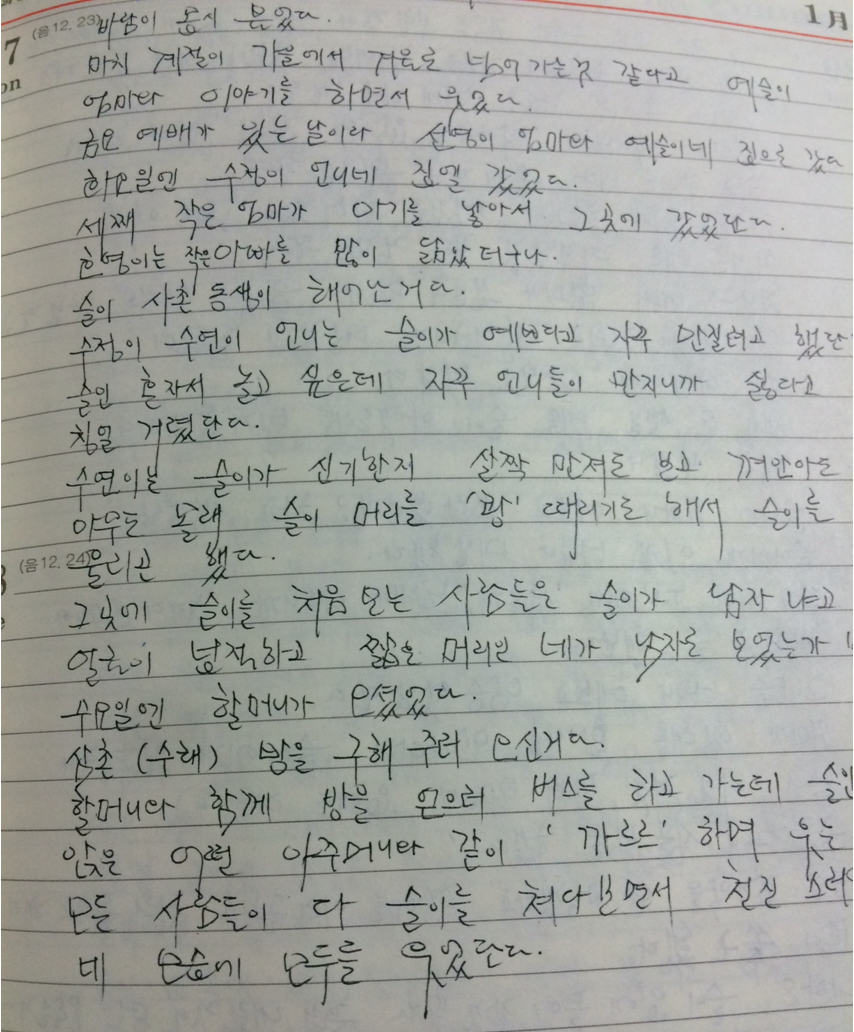 1月
7 (음 12. 23) 바람이 몹시 분었다.
on
마치 계절이 가을에서 겨울로 넘어가는것 같다고 예슬이
엄마와 이야기를 하면서 웃었다.
금요 예배가 있는 날이라 선영이 엄마와 예슬이네 집으로 갔다
화요일엔 수정이 언니네 집엘 갔었다.
세째 작은 엄마가 아기를 낳아서 그곳에 갔었단다.
한영이는 작은아빠를 많이 닮았더구나.
슬이 사촌 동생이 태어난거다.
수정이 수연이 언니는 슬이가 예쁘다고 자꾸 만질려고 했단
슬인 혼자서 놀고 싶은데 자꾸 언니들이 만지니까 싫다고
칭얼 거렸단다.
수연이는 슬이가 신기한지 살짝 만져도 보고 껴안아도
아무도 몰래 슬이 머리를 '쾅' 때리기도 해서 슬이를
(음12. 24) 울리곤 했다.
그곳에 슬이를 처음 보는 사람들은 슬이가 남자 냐고
얼굴이 넓적하고 짧은 머리인 네가 남자로 보였는가
수요일엔 할머니가 오셨었다.
삼촌 (수해) 방을 구해 주러 오신거다.
할머니와 함께 방을 얻으러 버스를 타고 가는데 슬인
앉은 어떤 아주머니와 같이 '까르르' 하며 웃는
모든 사람들이 다 슬이를 쳐다보면서 천진 스러
네 모습에 모두를 웃었단다.